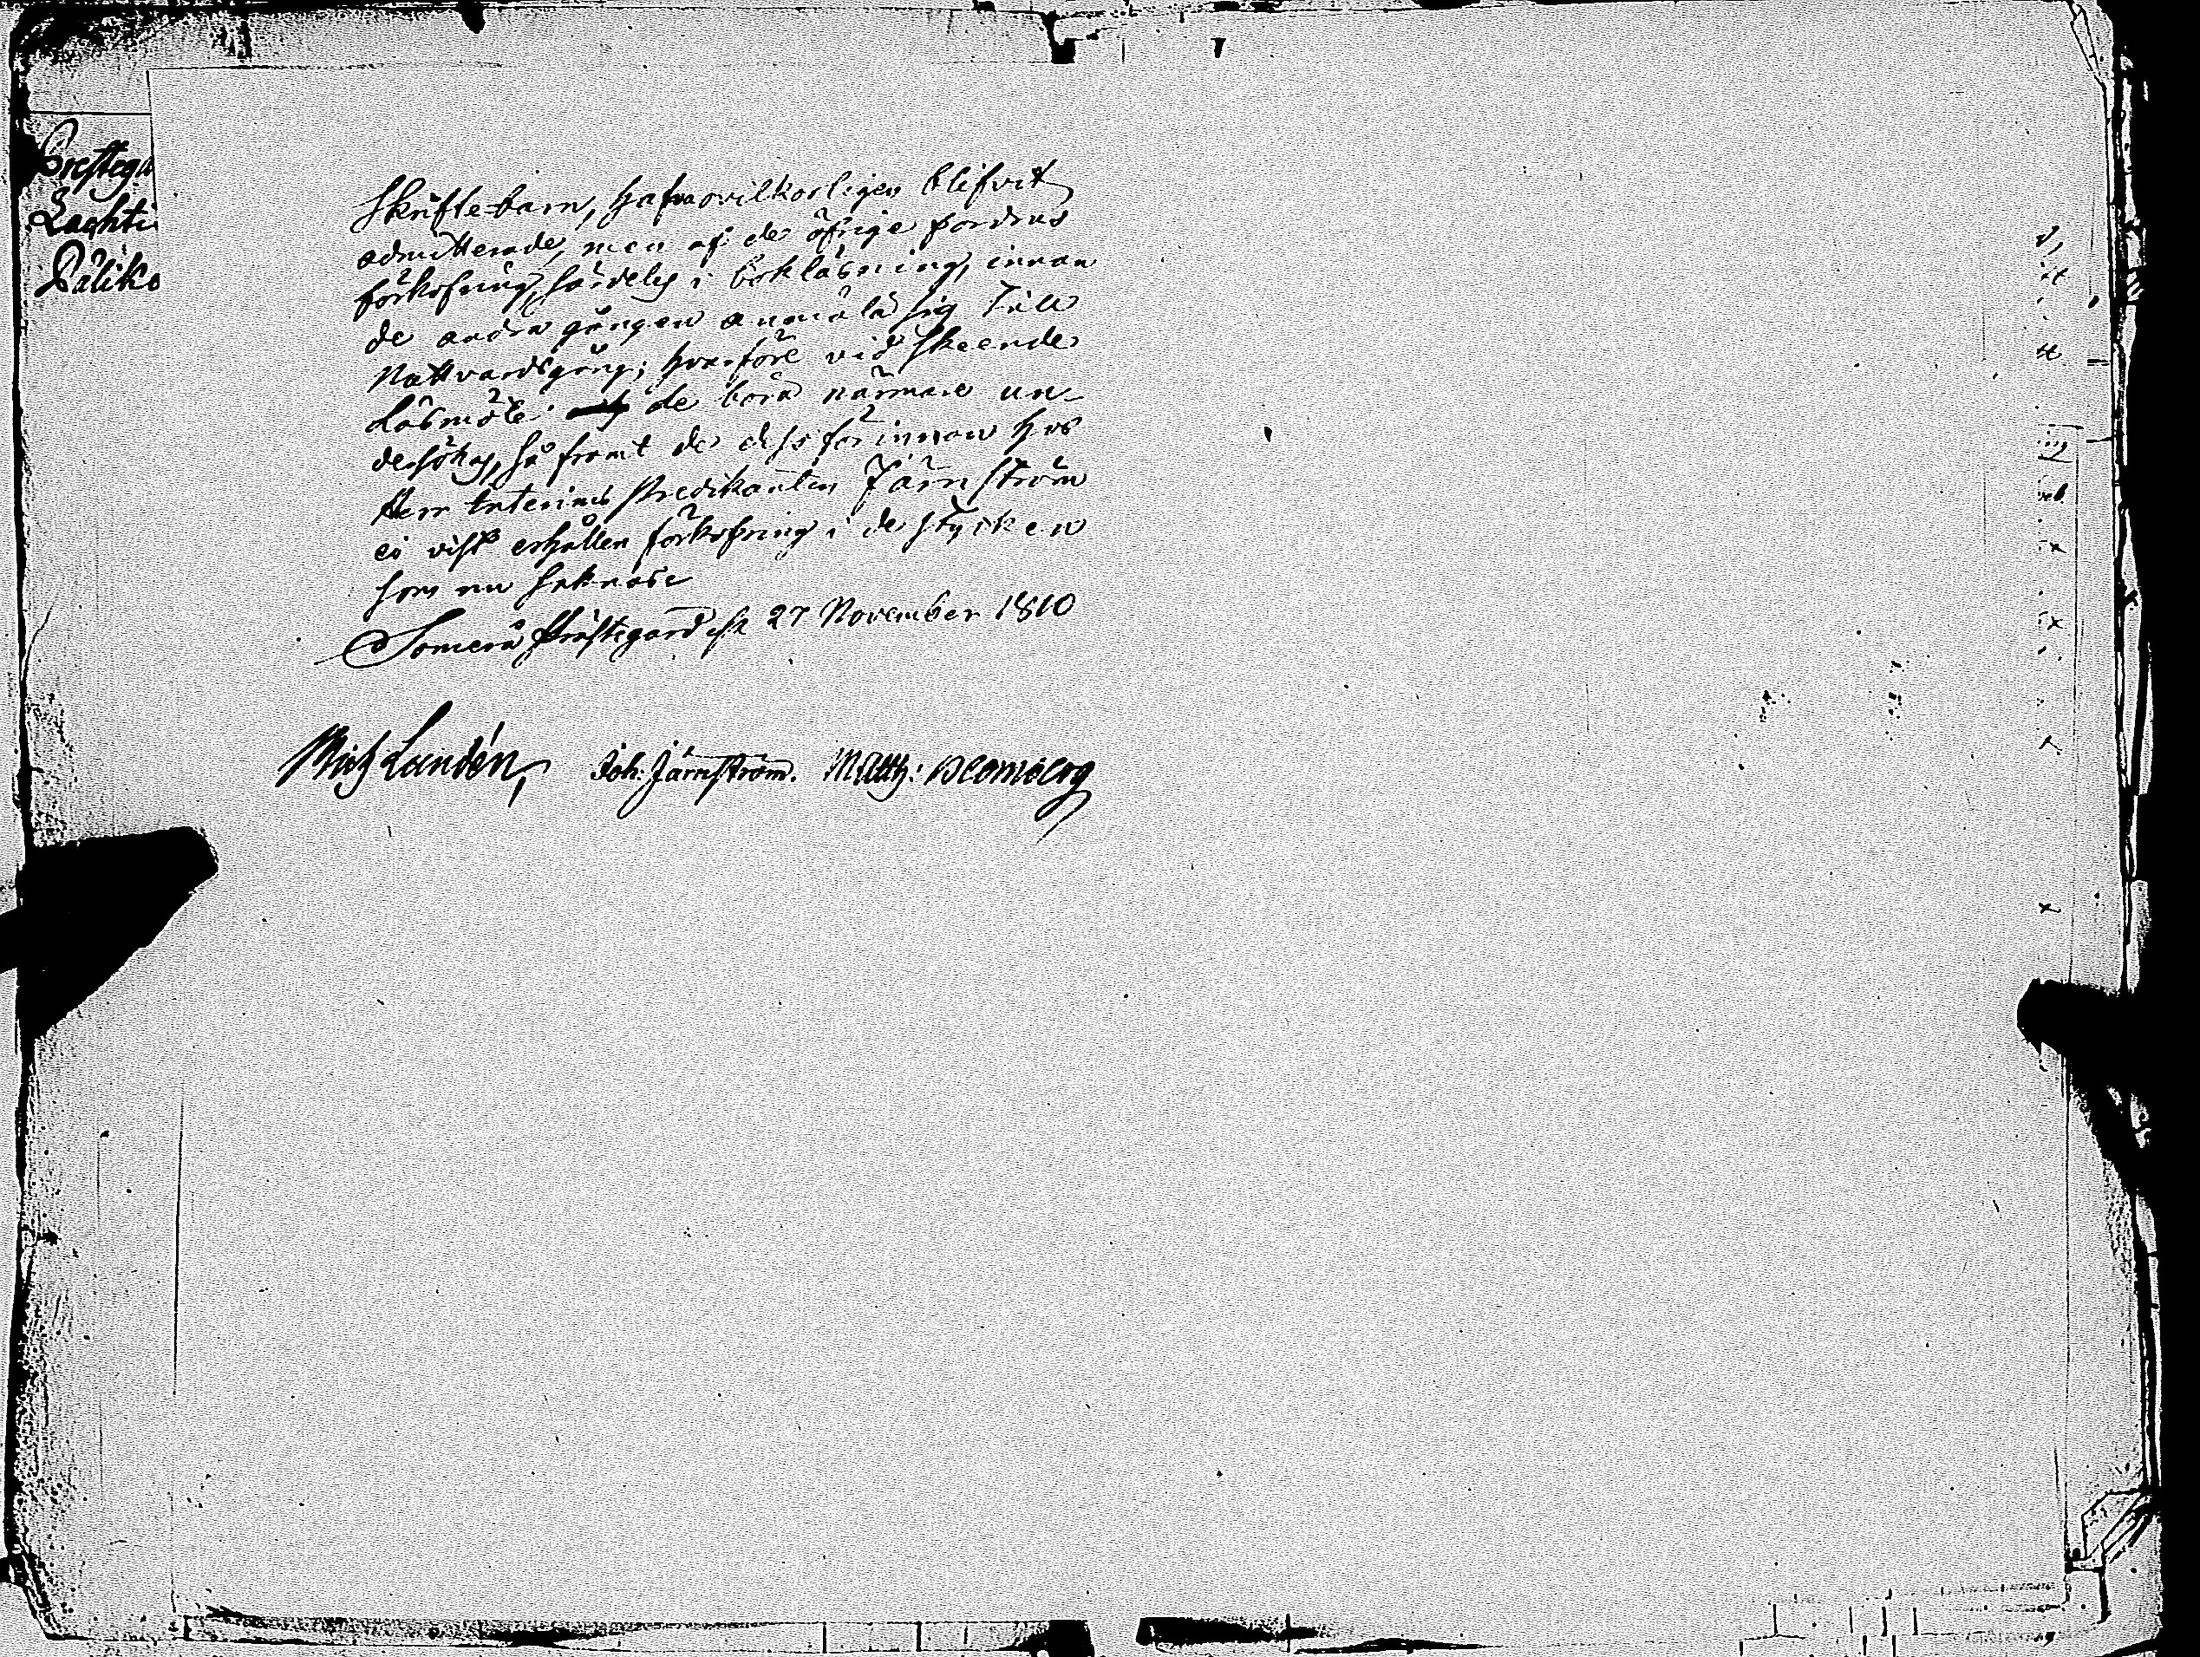 Prestegå
Lachti
Päliko
Skriftebarn, hafva ovilkorligen blifvit
admitterade, men af de öfrige fordras
förkofring, särdeles i bokläsning, innan
de andra gången anmäla sig till
Nattvardsgång; hvarföre vid skeende
Läsmöte de böra närmare un-
dersökas, så framt de dessförinnan hos
Herr Interims Predikanten Järnström
ei visst erhållen förkofring i de stycken
som nu saknas
Somero Prästegård d. 27 November 1810
Mich Lundén, Joh: Järnström. Matth: Blomberg